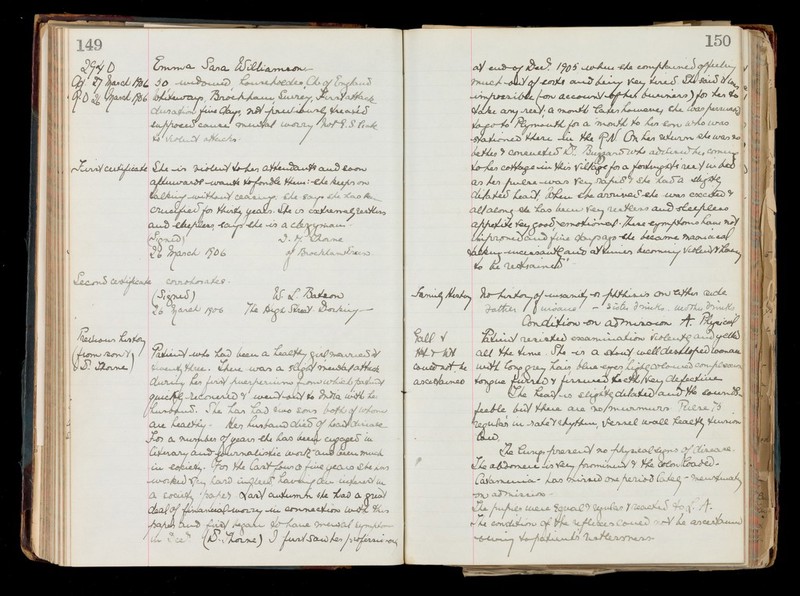 149
2940
Emma Sara Williamson
27 March 1906
50 widowed householder Ch of England
R O 26 March 1906
Brockham, Surrey, First attack
duration five days, not previously treated
supposed cause mental worry not E. S
to violent attacks.
First certificate
She is violent to her attendants and soon
afterwards wants to fondle them: she keeps on
talking without ceasing. She says she has been
crucified for thirty years. She is extremely restless
and sleepless says she is a clergyman
(Signed)
Thorne
26 March 1906
of Brockham Green
Second certificate
corroborates.
(Signed)
W L Bateson
26 March 1906
The High Street Dorking
Previous history
(from son &
Dr Thorne)
Patient who had been a healthy girl married at
twenty three. There was a slight mental attack
during her first puerperium from which patient
quickly recovered & went out to India with her
husband. She has had two sons both of whom
are healthy. Her husband died of heart disease
For a number of years she has been engaged in
literary and journalistic work and seen much
in society. For the last four or five years she has
worked very hard indeed having an interest in
a society paper. Last autumn she had a great
deal of financial worry in connection with this
paper and first began to have mental symptoms
in Dec (Dr Thorne) I first saw her professionally
150
at end of Decr 1905 when she complained of feeling
much out of sorts and being very tired. She said it was
impossible (on account of her business) for her to
take any rest, a month later however, she was persuaded
to go to Plymouth for a month to her son who was
stationed there in the R.N. On her return she was no
better & consulted Dr Buzzard who advised her coming
to her cottage in this village for a fortnight's rest in bed
as her pulse was very rapid & she had a slightly
dilated heart. When she arrived she was excited &
all along she has been very restless and sleepless
appetite very good, emotional. These symptoms have not
improved and five days ago she became maniacal
talking incessantly and at times becoming violent & having
to be restrained"
Family History
No history of insanity or phthisis on either side
Father - sister drinks. mother drinks
Condition on admission A. Physical
Patient resisted examination violently and yelled
all the time. She is a stout well developed woman
with long grey hair, blue eyes high coloured complexion
tongue furred & fissured teeth very defective
Ht & Wt
could not be
ascertained
The heart is slightly dilated and the sounds
feeble but there are no murmurs Pulse 78
regular in rate & rhythm, vessel wall healthy tension
low.
The lungs present no physical signs of disease.
The abdomen is very prominent & the colon loaded
Catamenia - has missed one period lately - menstruating
on admission.
The pupils were equal & regular & reacted to L. A.
The condition of the reflexes could not be ascertained
owing to patient's restlessness